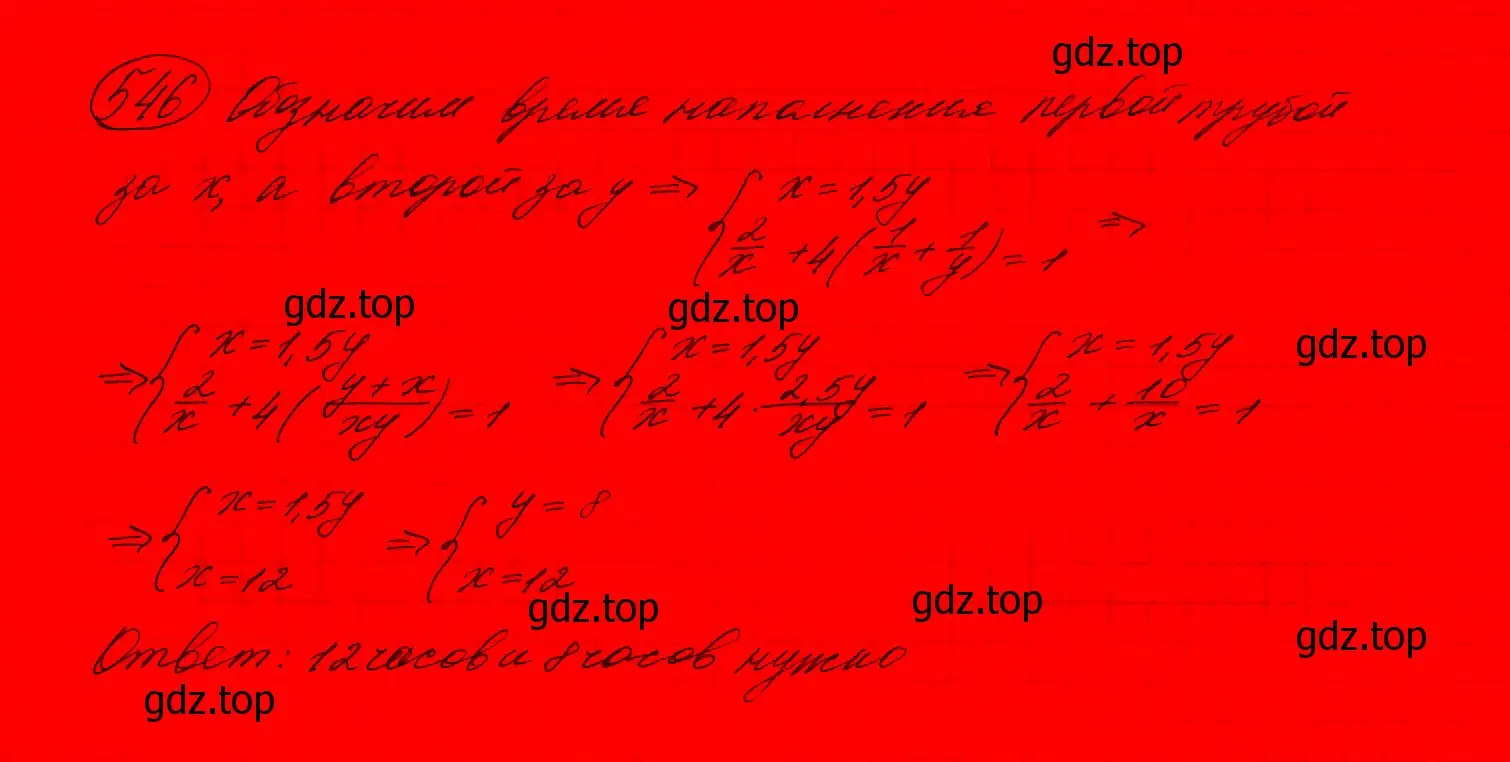 gdz.top
546 Обозначим время наполнения первой трубой
за x, а второй за y ⇒ { x = 1,5y
2/x + 4(1/x + 1/y) = 1 ⇒
gdz.top gdz.top gdz.top
⇒ { x = 1,5y ⇒ { x = 1,5y ⇒ { x = 1,5y
2/x + 4((y + x)/xy) = 1 2/x + 4 · 2,5y/xy = 1 2/x + 10/x = 1
⇒ { x = 1,5y ⇒ { y = 8
x = 12 x = 12
gdz.top gdz.top gdz.top
Ответ: 12 часов и 8 часов нужно
gdz.top